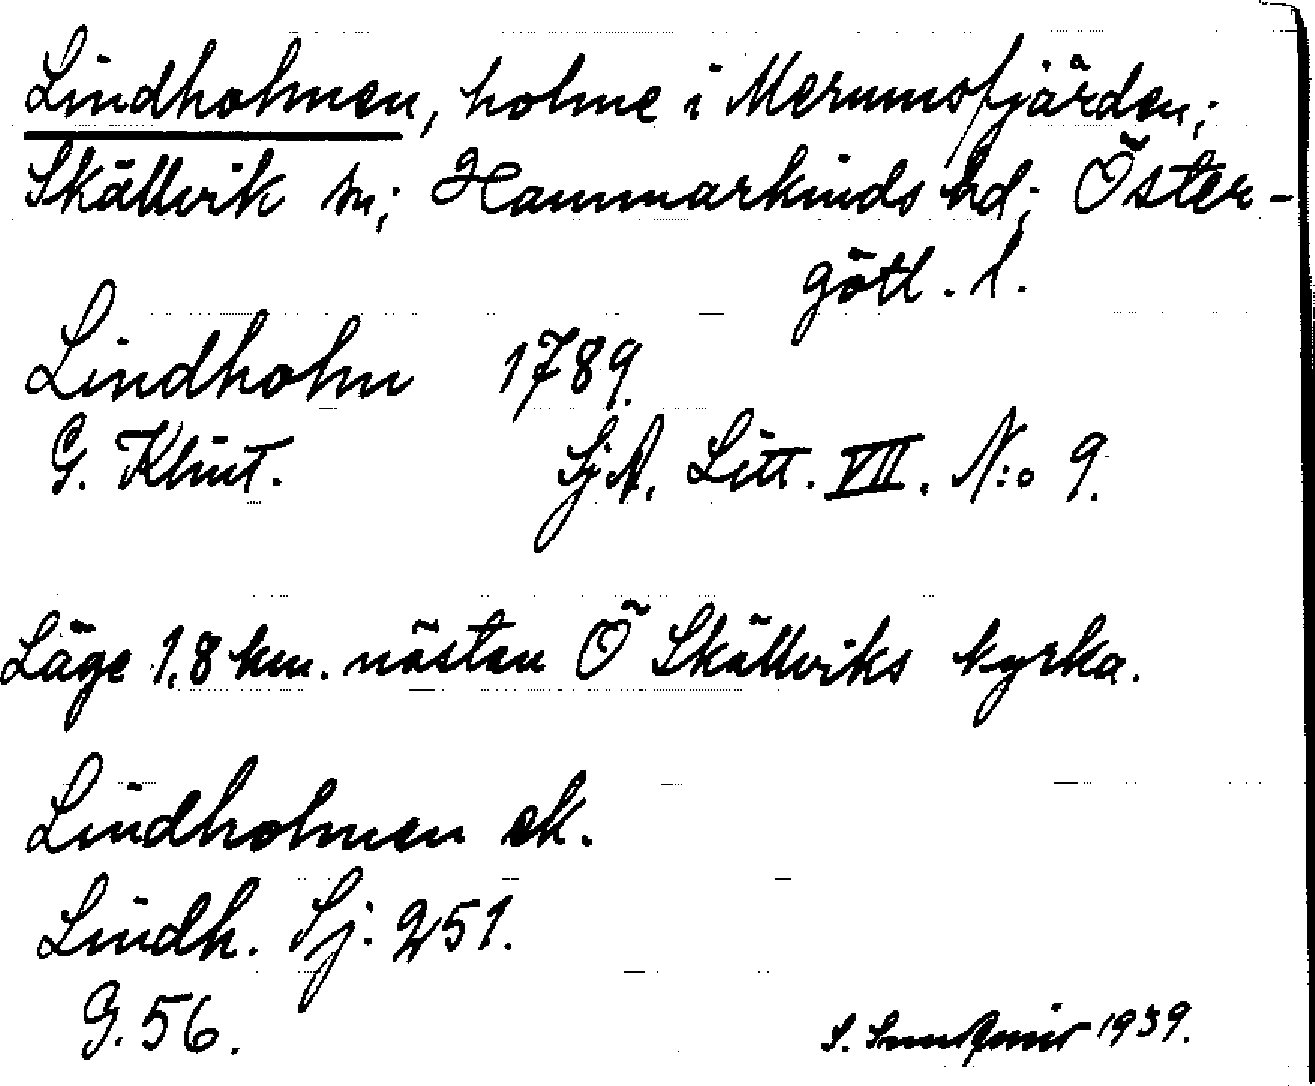 Lindholmen, holme i Merumsfjärden;
Skällvik sn; Hammarkinds hd; Öster-
götl. l.
Lindholm 1789.
G. Klint. SjA. Litt. VII. N:o 9.
Läge 1,8 km. nästan Ö Skällviks kyrka.
Lindholmen ek.
Lindh. Sj. 251.
G. 56.
S. 1939.